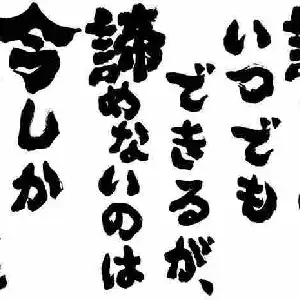 いつでも
できるが、
諦めないのは
今しか